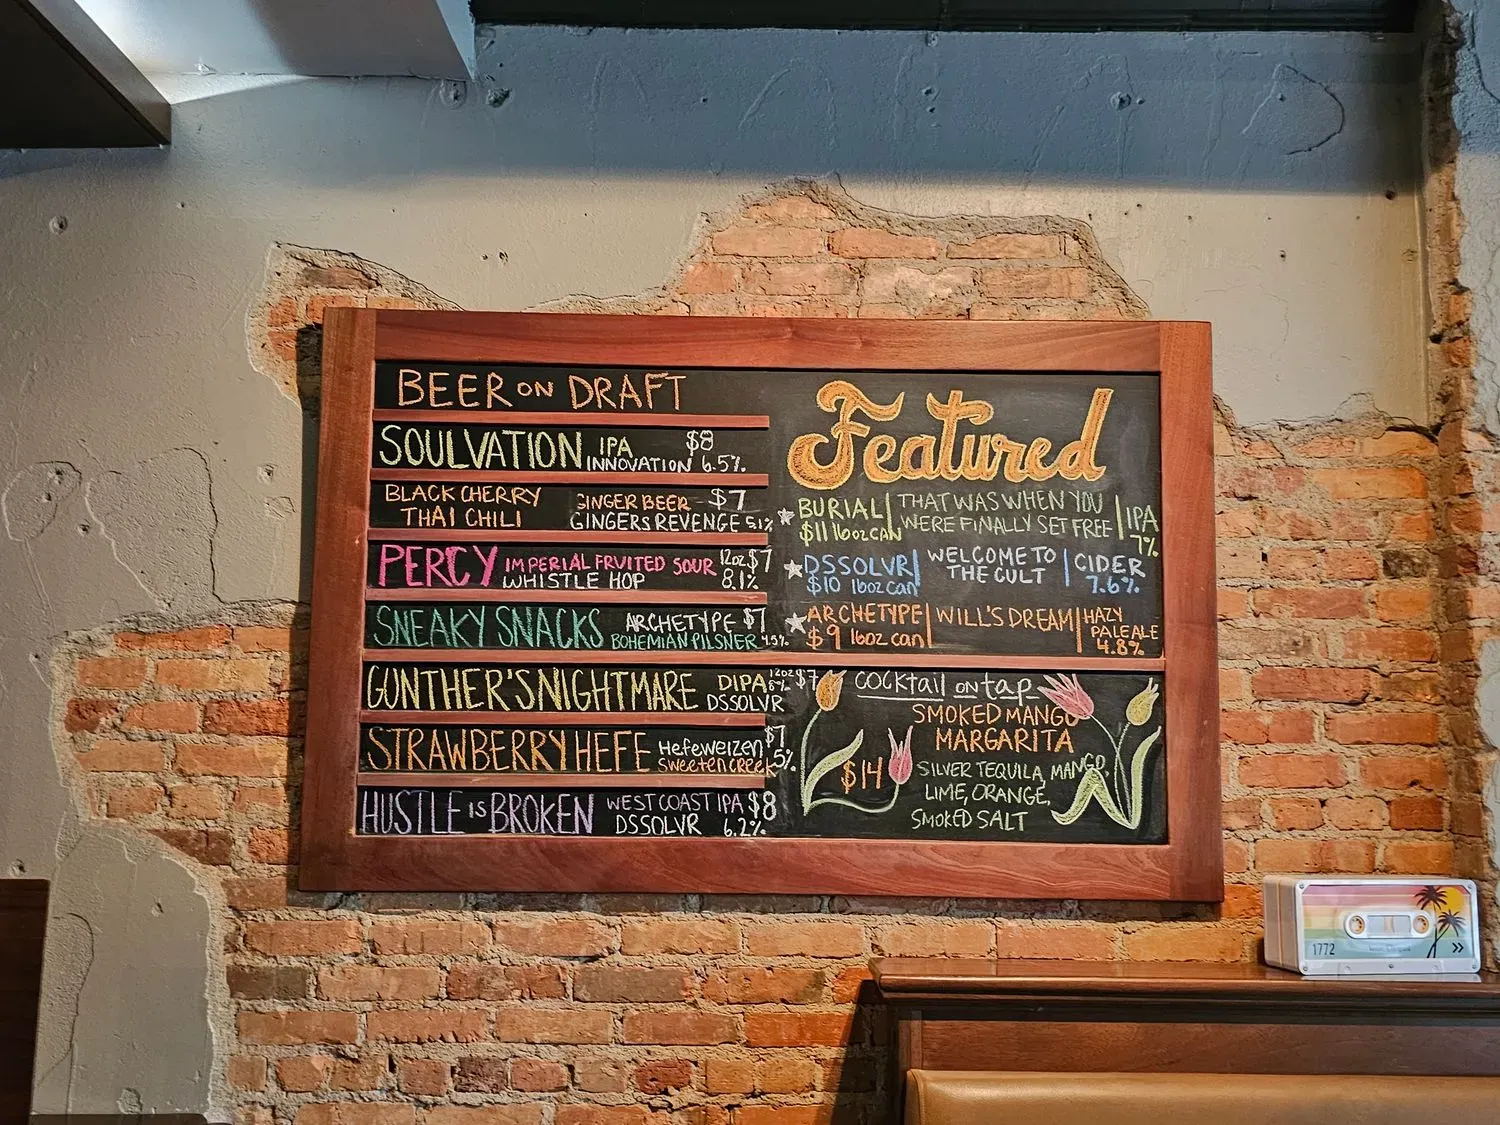 BEER ON DRAFT
SOULVATION IPA $8
INNOVATION 6.5%
BLACK CHERRY GINGER BEER $7
THAI CHILI GINGERS REVENGE 5.1%
PERCY IMPERIAL FRUITED SOUR 12oz $7
WHISTLE HOP 8.1%
SNEAKY SNACKS ARCHETYPE $7
BOHEMIAN PILSNER
GUNTHER'S NIGHTMARE DIPA 12oz $7
DSSOLVR
STRAWBERRY HEFE Hefeweizen $7
Sweeten Creek 5%
HUSTLE IS BROKEN WEST COAST IPA $8
DSSOLVR 6.2%
Featured
BURIAL THAT WAS WHEN YOU IPA
$11 16oz CAN WERE FINALLY SET FREE 7%
DSSOLVR WELCOME TO CIDER
$10 16oz can THE CULT 7.6%
ARCHETYPE WILL'S DREAM HAZY
$9 16oz can PALE ALE
4.8%
COCKtail on tap
SMOKED MANGO
MARGARITA
$14
SILVER TEQUILA, MANGO,
LIME, ORANGE,
SMOKED SALT
1772